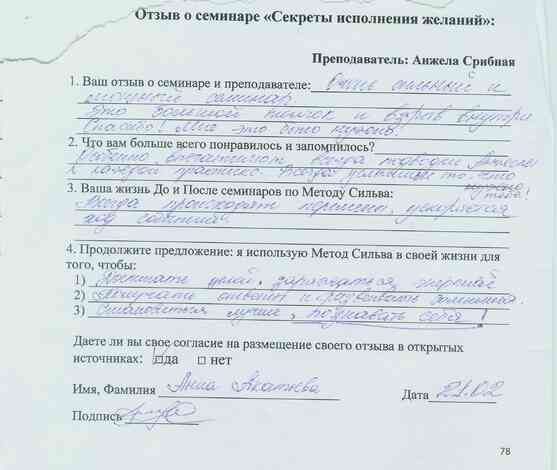 Отзыв о семинаре «Секреты исполнения желаний»:
Преподаватель: Анжела Срибная
1. Ваш отзыв о семинаре и преподавателе: Очень сильный и
мощный семинар.
Это большой толчок и взрыв внутри
Спасибо! Мне это было нужно!
2. Что вам больше всего понравилось и запомнилось?
Особенно впечатляют всегда подводки Анжелы
к каждой практике. Всегда услышишь то, что
нужно тебе!
3. Ваша жизнь До и После семинаров по Методу Сильва:
Всегда происходят перемены, ускоряется
ход событий.
4. Продолжите предложение: я использую Метод Сильва в своей жизни для
того, чтобы:
1) Достигать целей, заряжаться энергией
2) Получать ответы и развивать
3) Становиться лучше, познавать себя!
Даете ли вы свое согласие на размещение своего отзыва в открытых
источниках: да нет
Имя, Фамилия Анна Акатьева Дата 21.02
Подпись
78